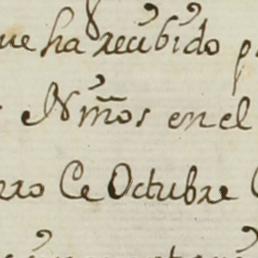 ue ha recibido p
Niños en el
ero Ce Octubre